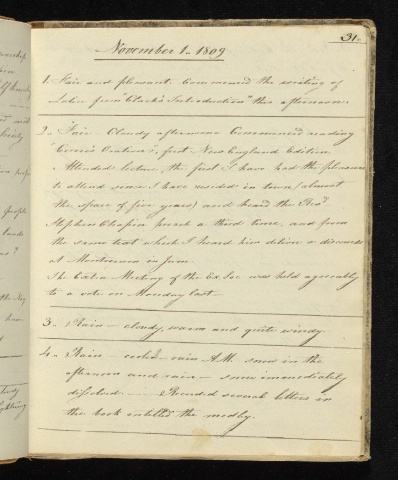 31.
November 1. 1809
1. Fair and pleasant. Commenced the writing of
Latin from "Clark's Introduction" this afternoon.
2. Fair. Cloudy afternoon Commenced reading
"Cicero's Orations", first New England Edition.
Attended lecture, the first I have had the pleasure
to attend since I have resided in town (almost
the space of five years) and heard the Revd
Stephen Chapin preach a third time, and from
the same text which I heard him deliver a discourse
at in June.
The Extra Meeting of the Ex. Soc. was held agreeably
to a vote on Monday last.
3. Rain — cloudy, warm and quite windy.
4. Rain — cooler — rain A.M. snow in the
afternoon and rain — snow immediately
dissolved. — several letters in
the book entitled the medly.